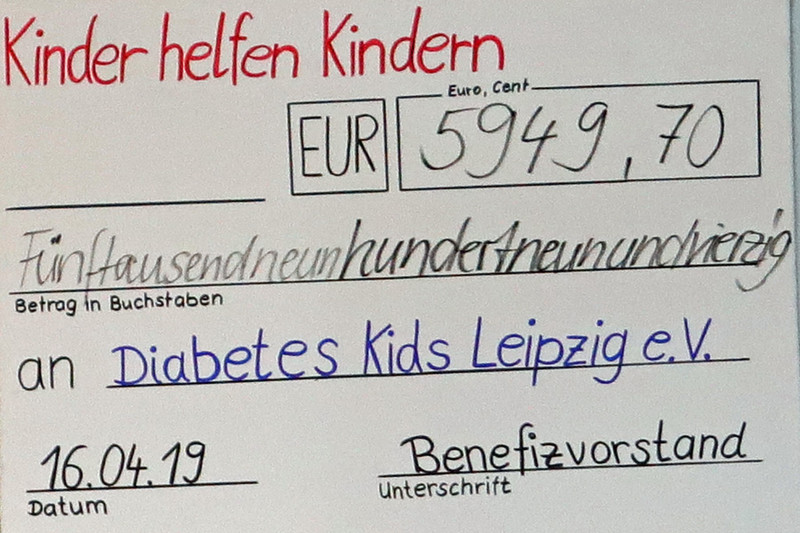 Kinder helfen Kindern
Euro, Cent
EUR 5949,70
Fünftausendneunhundertneunundvierzig
Betrag in Buchstaben
an Diabetes Kids Leipzig e.V.
16.04.19 Benefizvorstand
Datum Unterschrift